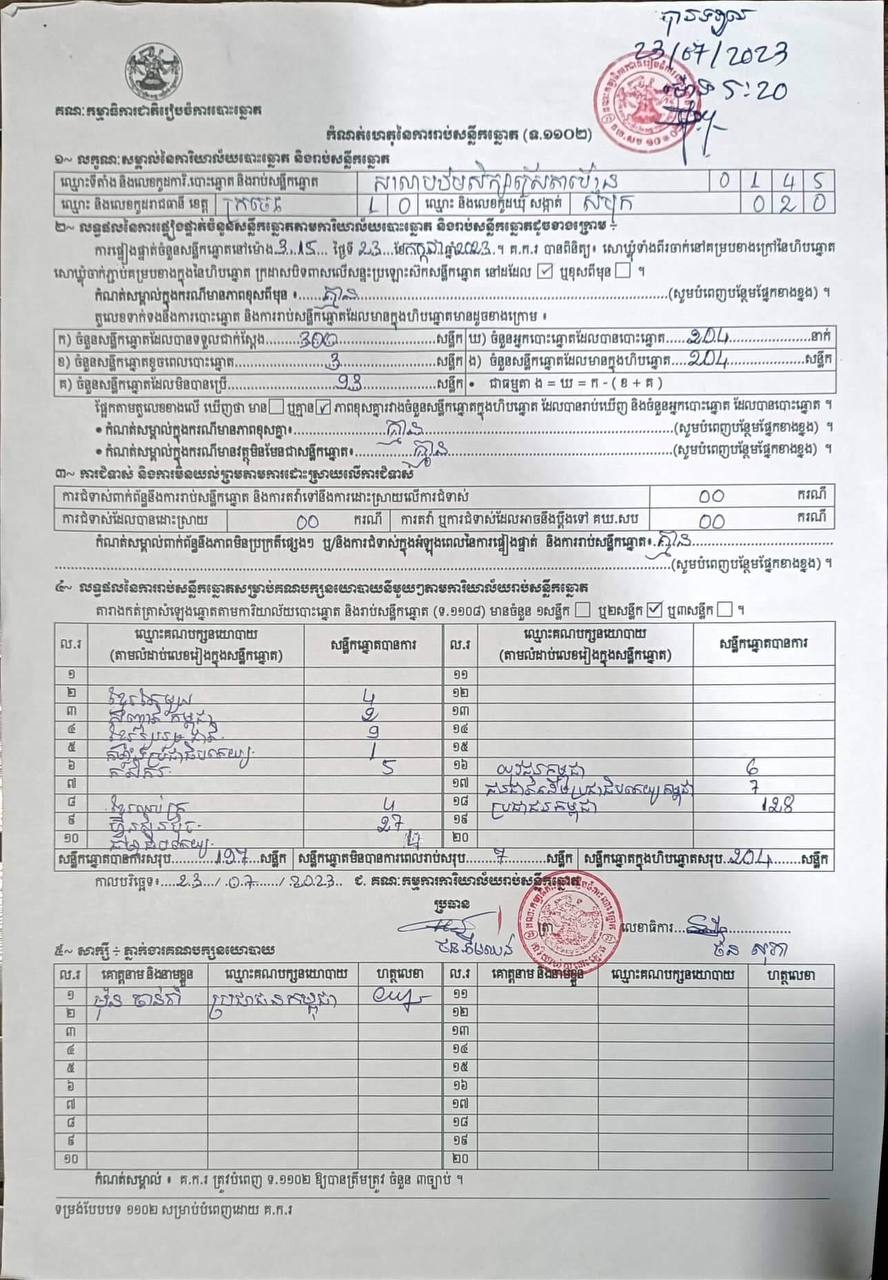 បានទទួល
23/07/2023
ម៉ោង ៩:20
គណៈកម្មាធិការជាតិរៀបចំការបោះឆ្នោត
កំណត់ហេតុនៃការរាប់សន្លឹកឆ្នោត (ទ.១១០២)
១~ លក្ខណៈសម្គាល់នៃការិយាល័យបោះឆ្នោត និងរាប់សន្លឹកឆ្នោត
ឈ្មោះទីតាំង និងលេខកូដការិ.បោះឆ្នោត និងរាប់សន្លឹកឆ្នោត សាលាបឋមសិក្សា 0 1 4 5
ឈ្មោះ និងលេខកូដរាជធានី ខេត្ត ក្រចេះ 1 0 ឈ្មោះ និងលេខកូដឃុំ សង្កាត់ សំបុក 0 2 0
២~ លទ្ធផលនៃការផ្ទៀងផ្ទាត់ចំនួនសន្លឹកឆ្នោតតាមការិយាល័យបោះឆ្នោត និងរាប់សន្លឹកឆ្នោតដូចខាងក្រោម ÷
ការផ្ទៀងផ្ទាត់ចំនួនសន្លឹកឆ្នោតនៅម៉ោង 3:15 ថ្ងៃទី 23 ខែ កក្កដា ឆ្នាំ 2023 ។ គ.ក.រ បានពិនិត្យ៖ សោឃ្លុំទាំងពីរចាក់នៅគម្របខាងក្រៅនៃហិបឆ្នោត
សោឃ្លុំចាក់ភ្ជាប់គម្របខាងក្នុងនៃហិបឆ្នោត ក្រដាសបិទពាសលើសន្ទះប្រឡោះស៊កសន្លឹកឆ្នោត នៅដដែល ☑ ឬខុសពីមុន ☐ ។
កំណត់សម្គាល់ក្នុងករណីមានភាពខុសពីមុន ៖ គ្មាន (សូមបំពេញបន្ថែមផ្នែកខាងខ្នង) ។
តួលេខទាក់ទងនឹងការបោះឆ្នោត និងការរាប់សន្លឹកឆ្នោតដែលមានក្នុងហិបឆ្នោតមានដូចខាងក្រោម ៖
ក) ចំនួនសន្លឹកឆ្នោតដែលបានទទួលជាក់ស្តែង 300 សន្លឹក ឃ) ចំនួនអ្នកបោះឆ្នោតដែលបានបោះឆ្នោត 204 នាក់
ខ) ចំនួនសន្លឹកឆ្នោតខូចពេលបោះឆ្នោត 3 សន្លឹក ង) ចំនួនសន្លឹកឆ្នោតដែលមានក្នុងហិបឆ្នោត 204 សន្លឹក
គ) ចំនួនសន្លឹកឆ្នោតដែលមិនបានប្រើ 93 សន្លឹក • ជាធម្មតា ង = ឃ = ក - ( ខ + គ )
ផ្អែកតាមតួលេខខាងលើ ឃើញថា មាន ☐ ឬគ្មាន ☑ ភាពខុសគ្នារវាងចំនួនសន្លឹកឆ្នោតក្នុងហិបឆ្នោត ដែលបានរាប់ឃើញ និងចំនួនអ្នកបោះឆ្នោត ដែលបានបោះឆ្នោត ។
• កំណត់សម្គាល់ក្នុងករណីមានភាពខុសគ្នា៖ គ្មាន (សូមបំពេញបន្ថែមផ្នែកខាងខ្នង) ។
• កំណត់សម្គាល់ក្នុងករណីមានវត្ថុមិនមែនជាសន្លឹកឆ្នោត៖ គ្មាន (សូមបំពេញបន្ថែមផ្នែកខាងខ្នង) ។
៣~ ការជំទាស់ និងការមិនយល់ព្រមតាមការដោះស្រាយលើការជំទាស់
ការជំទាស់ពាក់ព័ន្ធនឹងការរាប់សន្លឹកឆ្នោត និងការតវ៉ាទៅនឹងការដោះស្រាយលើការជំទាស់ 00 ករណី
ការជំទាស់ដែលបានដោះស្រាយ 00 ករណី ការតវ៉ា ឬការជំទាស់ដែលអាចនឹងប្តឹងទៅ គឃ.សប 00 ករណី
កំណត់សម្គាល់ពាក់ព័ន្ធនឹងភាពមិនប្រក្រតីផ្សេងៗ ឬ/និងការជំទាស់ក្នុងអំឡុងពេលនៃការផ្ទៀងផ្ទាត់ និងការរាប់សន្លឹកឆ្នោត៖ គ្មាន
(សូមបំពេញបន្ថែមផ្នែកខាងខ្នង) ។
៤~ លទ្ធផលនៃការរាប់សន្លឹកឆ្នោតសម្រាប់គណបក្សនយោបាយនីមួយៗតាមការិយាល័យរាប់សន្លឹកឆ្នោត
តារាងកត់ត្រាសំឡេងឆ្នោតតាមការិយាល័យបោះឆ្នោត និងរាប់សន្លឹកឆ្នោត (ទ.១១០៨) មានចំនួន ១សន្លឹក ☐ ឬ២សន្លឹក ☑ ឬ៣សន្លឹក ☐ ។
ល.រ ឈ្មោះគណបក្សនយោបាយ (តាមលំដាប់លេខរៀងក្នុងសន្លឹកឆ្នោត) សន្លឹកឆ្នោតបានការ ល.រ ឈ្មោះគណបក្សនយោបាយ (តាមលំដាប់លេខរៀងក្នុងសន្លឹកឆ្នោត) សន្លឹកឆ្នោតបានការ
១ ១១
២ 4 ១២
៣ 2 ១៣
៤ ១៤
៥ 1 ១៥
៦ 5 ១៦ យុវជនកម្ពុជា 6
៧ ១៧ 7
៨ 4 ១៨ ប្រជាជនកម្ពុជា 128
៩ ហ្វ៊ុនស៊ិនប៉ិច 27 ១៩
១០ ២០
សន្លឹកឆ្នោតបានការសរុប 197 សន្លឹក សន្លឹកឆ្នោតមិនបានការពេលរាប់សរុប 7 សន្លឹក សន្លឹកឆ្នោតក្នុងហិបឆ្នោតសរុប 204 សន្លឹក
កាលបរិច្ឆេទ៖ 23 / 07 / 2023 ជ. គណៈកម្មការការិយាល័យរាប់សន្លឹកឆ្នោត
ប្រធាន
ត្រា លេខាធិការ
៥~ សាក្សី ÷ ភ្នាក់ងារគណបក្សនយោបាយ
ល.រ គោត្តនាម និងនាមខ្លួន ឈ្មោះគណបក្សនយោបាយ ហត្ថលេខា ល.រ គោត្តនាម និងនាមខ្លួន ឈ្មោះគណបក្សនយោបាយ ហត្ថលេខា
១ ប្រជាជនកម្ពុជា ១១
២ ១២
៣ ១៣
៤ ១៤
៥ ១៥
៦ ១៦
៧ ១៧
៨ ១៨
៩ ១៩
១០ ២០
កំណត់សម្គាល់ ៖ គ.ក.រ ត្រូវបំពេញ ទ.១១០២ ឱ្យបានត្រឹមត្រូវ ចំនួន ៣ច្បាប់ ។
ទម្រង់បែបបទ ១១០២ សម្រាប់បំពេញដោយ គ.ក.រ